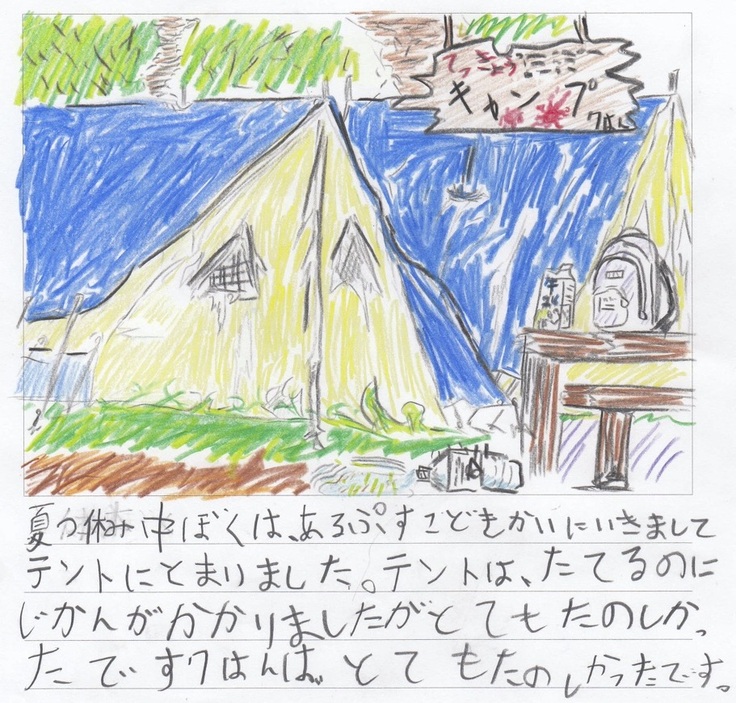 キャンプ
7はん
夏の休み中ぼくは、あるぷすこどもかいにいきまして
テントにとまりました。テントは、たてるのに
じかんがかかりましたがとてもたのしかっ
たです7はんは、とてもたのしかったです。